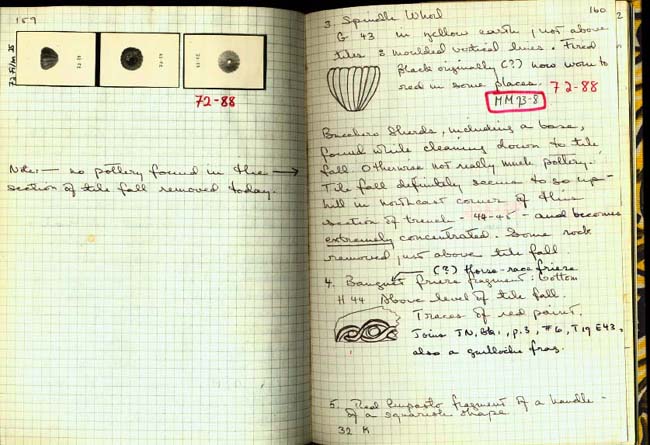 159
72 Fi/m III
72-88
Note: — no pottery found in the →
section of tile fall removed today.
160
2
3. Spindle Whorl
G 43 in yellow earth, just above
tiles 3 moulded vertical lines. Fired
black originally (?) now worn to
red in some places.
72-88
MM 73-8
Bucchero sherds, including a base,
found while cleaning down to tile
fall. Otherwise not really much pottery.
Tile fall definitely seems to go up-
hill in northeast corner of this
section of trench - 44-45 - and becomes
extremely concentrated. Some rock
removed, just above tile fall
(?) Horse-race frieze
4. Banquet frieze fragment: bottom
H 44 Above level of tile fall.
Traces of red paint.
Joins TN, Bk 1, p. 3, #6, T19 E43,
also a guilloche frag.
5. Red Impasto fragment of a handle -
of a squarish shape
32 K